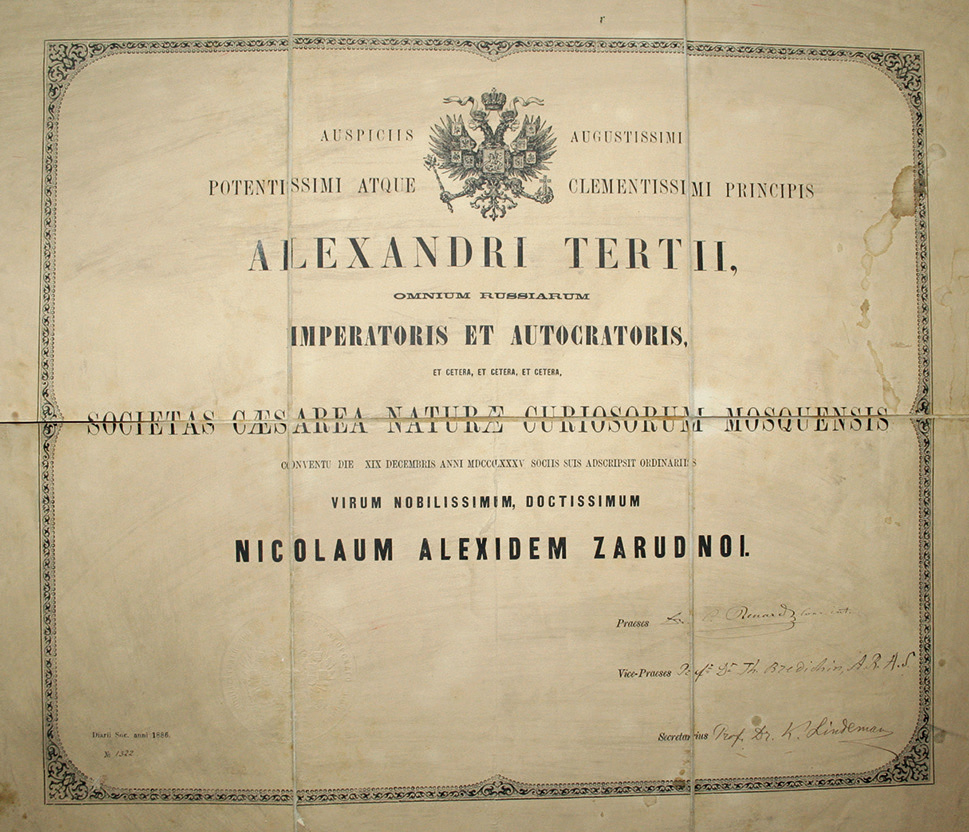 AUSPICIIS AUGUSTISSIMI
POTENTISSIMI ATQUE CLEMENTISSIMI PRINCIPIS
ALEXANDRI TERTII,
OMNIUM RUSSIARUM
IMPERATORIS ET AUTOCRATORIS,
ET CETERA, ET CETERA, ET CETERA,
SOCIETAS CÆSAREA NATURÆ CURIOSORUM MOSQUENSIS
CONVENTU DIE XIX DECEMBRIS ANNI MDCCCLXXXV SOCIIS SUIS ADSCRIPSIT ORDINARIIS
VIRUM NOBILISSIMIM, DOCTISSIMUM
NICOLAUM ALEXIDEM ZARUDNOI.
Praeses Renard
Vice-Praeses Prof. Dr Th. Bredichin, A. R. A. S.
Secretarius Prof. Dr. K. Lindeman
Diarii Soc. anni 1886.
№ 1322